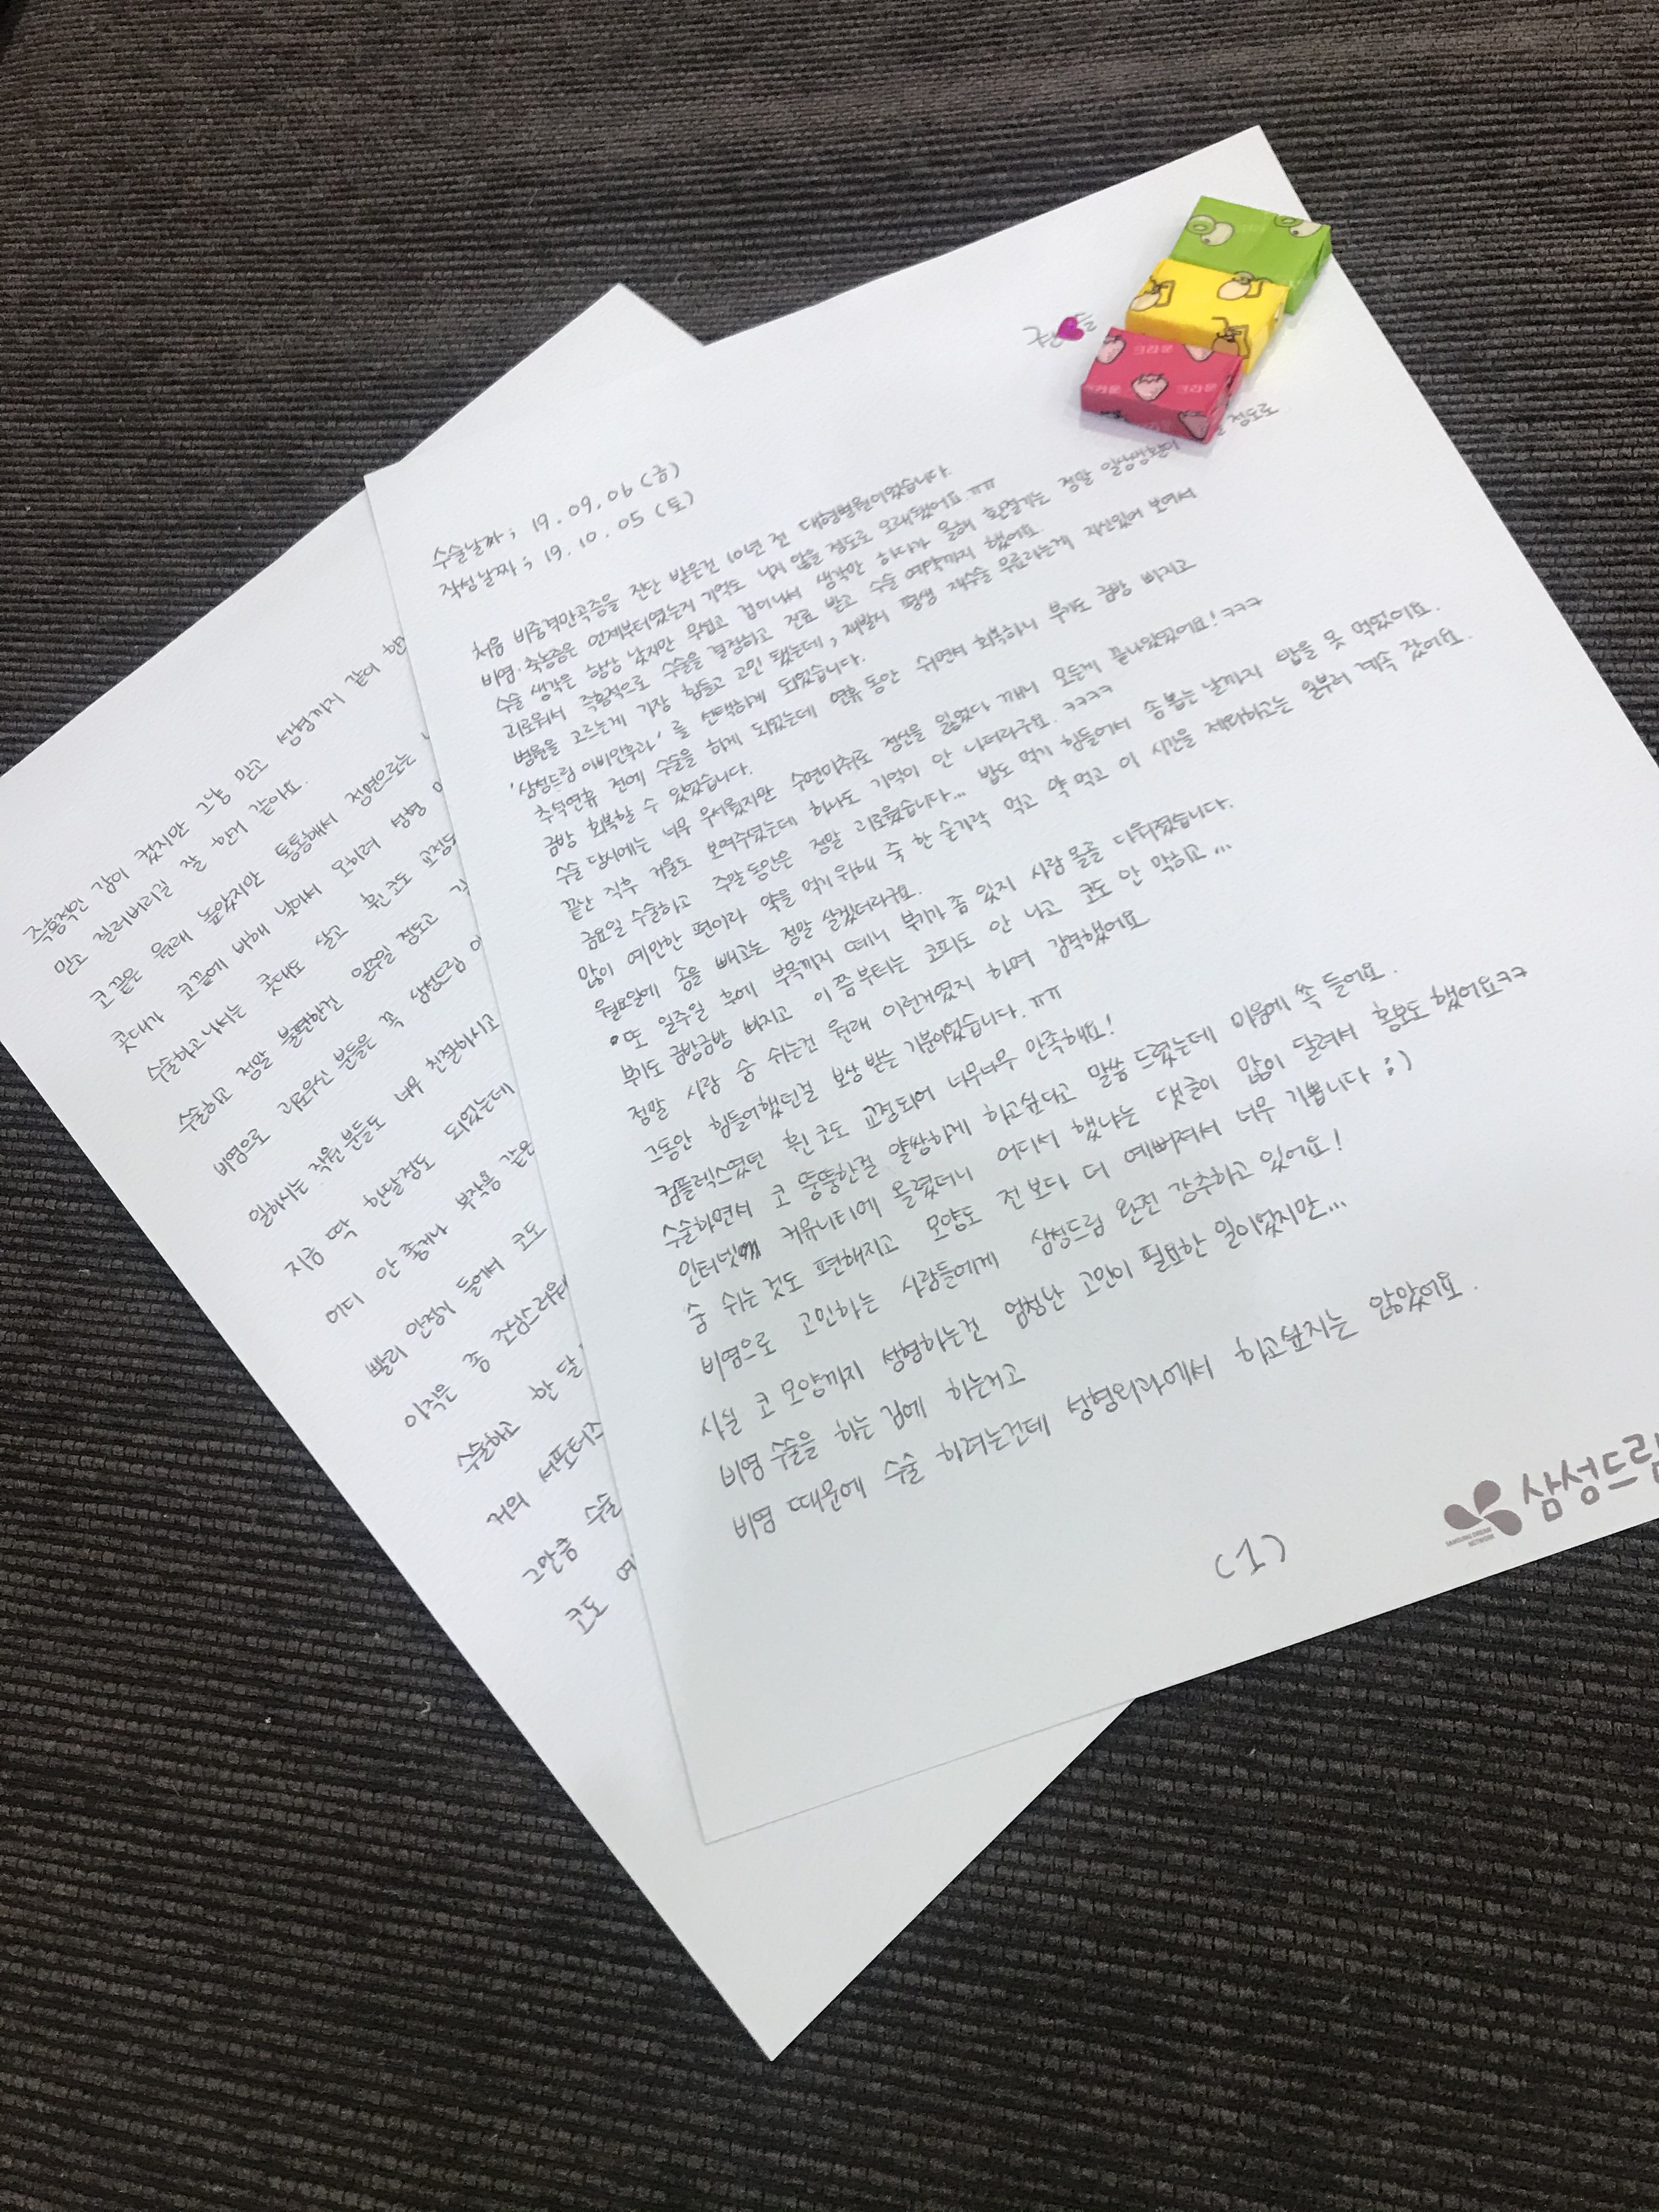 수술날짜 ; 19.09.06 (금)
작성날짜 ; 19.10.05 (토)
처음 비중격만곡증을 진단 받은건 10년 전 대형병원이었습니다.
비염·축농증은 언제부터였는지 기억도 나지 않을 정도로 오래됐어요.ㅠㅠ
수술 생각은 항상 났지만 무섭고 겁이나서 생각만 하다가 올해 환절기는 정말 정도로
괴로워서 즉흥적으로 수술을 결정하고 진료 받고 수술 예약까지 했어요.
병원을 고르는게 가장 힘들고 고민 됐는데, 재발시 평생 재수술 무료라는게 자신있어 보여서
'삼성드림 이비인후과'를 선택하게 되었습니다.
추석연휴 전에 수술을 하게 되었는데 연휴 동안 쉬면서 회복하니 붓기도 금방 빠지고
금방 회복할 수 있었습니다.
수술 당시에는 너무 무서웠지만 수면마취로 정신을 잃었다 깨니 모든게 끝나있었어요!ㅋㅋㅋ
끝난 직후 거울도 보여주셨는데 하나도 기억이 안 나더라구요.ㅋㅋㅋㅋ
금요일 수술하고 주말동안은 정말 괴로웠습니다... 밥도 먹기 힘들어서 솜 뽑는 날까지 밥을 못 먹었어요.
많이 예민한 편이라 약을 먹기 위해 죽 한 숟가락 먹고 약 먹고 이 시간을 제외하고는 일부러 계속 잤어요.
월요일에 솜을 빼고는 정말 살겠더라구요.
또 일주일 후에 부목까지 떼니 붓기가 좀 있지 사람 몰골 다워졌습니다.
붓기도 금방금방 빠지고 이 쯤부터는 코피도 안 나고 코도 안 막히고...
정말 사람 숨 쉬는건 원래 이런거였지 하며 감탄했어요
그동안 힘들어했던걸 보상 받는 기분이었습니다.ㅠㅠ
컴플렉스였던 휜 코도 교정되어 너무너무 만족해요!
수술하면서 코 뚱뚱한걸 얄쌍하게 하고싶다고 말씀 드렸는데 마음에 쏙 들어요.
인터넷 커뮤니티에 올렸더니 어디서 했냐는 댓글이 많이 달려서 홍보도 했어요ㅋㅋ
숨 쉬는 것도 편해지고 모양도 전보다 더 예뻐져서 너무 기쁩니다 :)
비염으로 고민하는 사람들에게 삼성드림 완전 강추하고 있어요!
사실 코 모양까지 성형하는건 엄청난 고민이 필요한 일이었지만...
비염 수술을 하는 김에 하는거고
비염 때문에 수술 하려는건데 성형외과에서 하고싶지는 않았어요.
(1)
삼성드림
SAMSUNG DREAM
NETWORK
크라운
크라운
즉흥적인 감이 컸지만 그냥 믿고 성형까지 같이
믿고 질러버리길 잘 한거 같아요.
코 끝은 원래 높았지만 통통해서 정면으로는
콧대가 코끝에 비해 낮아서 오히려
수술하고 나서는 콧대도 살고 휜코도 교정
수술 과 정말 불편한건 일주일 정도고
비염으로 괴로우신 분들은 꼭 삼성드림
일하시는 직원 분들도 너무 친절하시고
지금 딱 한달정도 되었는데
어디 안 좋거나 부작용 같은
빨리 안정기 들어서 코도
아직은 좀 조심스러워
수술하고 한 달
거의
그만큼 수술
코도